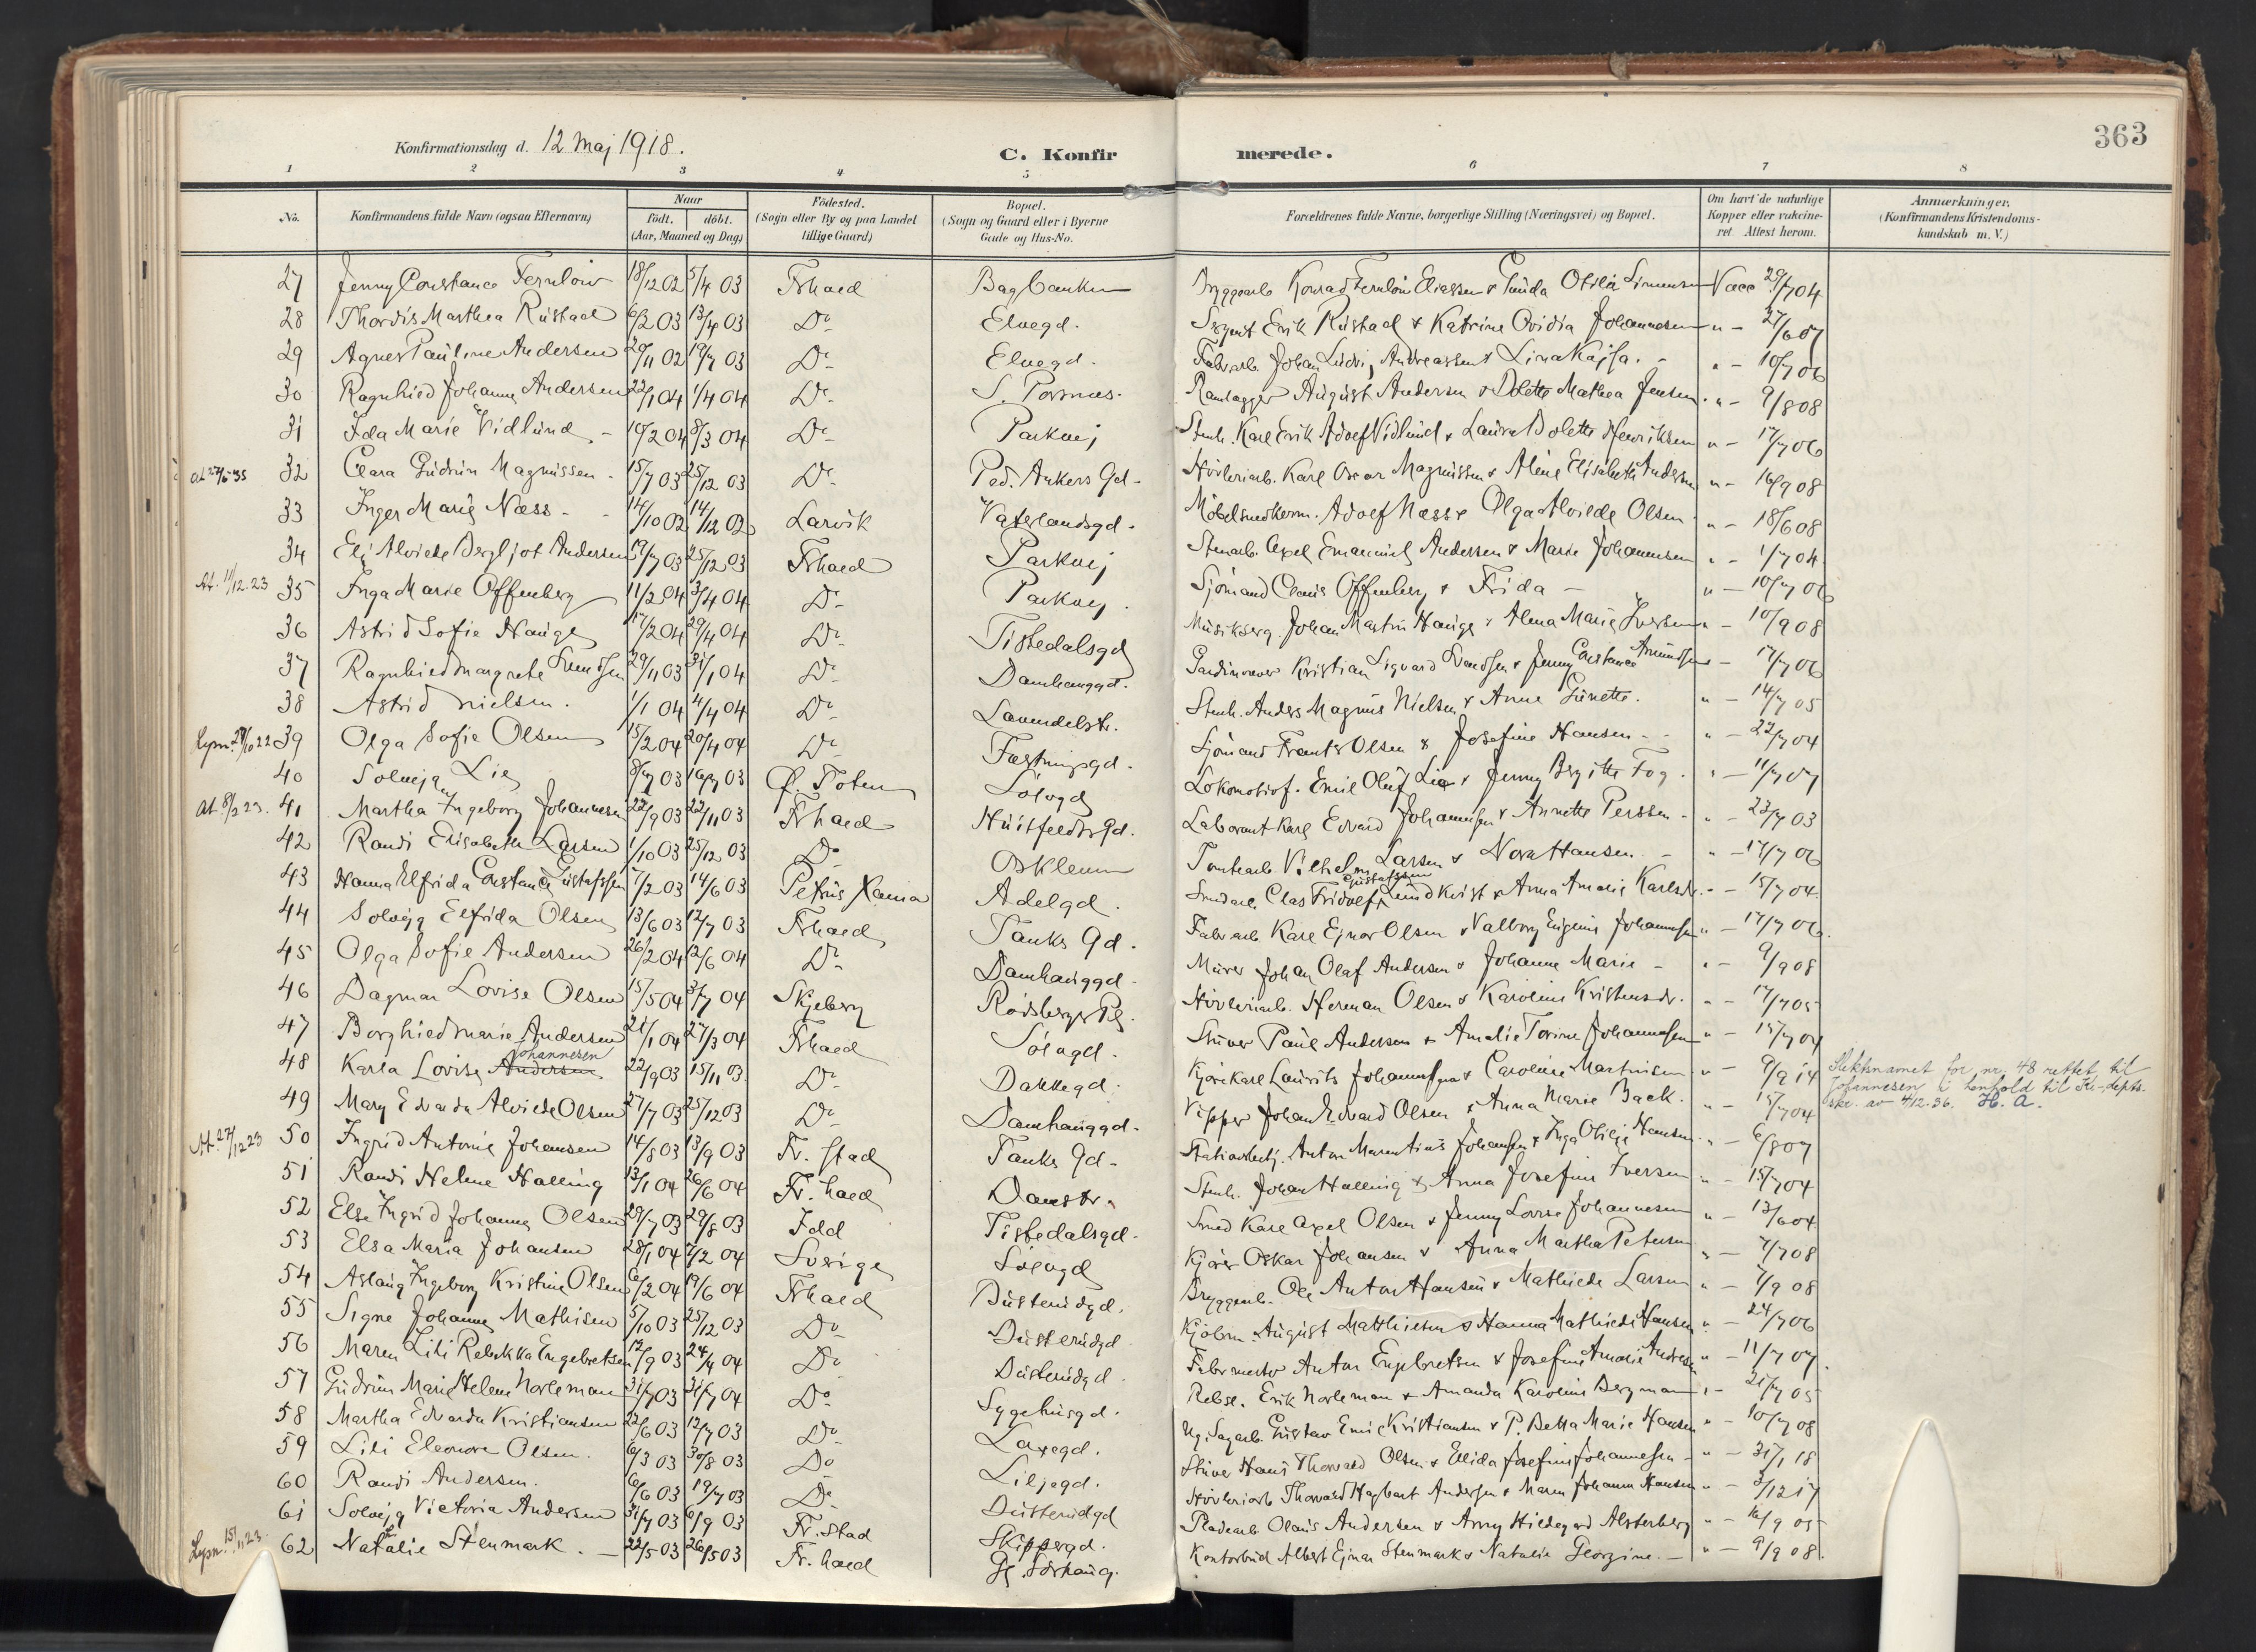 363
Konfirmationsdag d. 12 Maj 1918.
C. Konfirmerede.
1 2 3 4 5 6 7 8
No. Konfirmandens fulde Navn (ogsaa Efternavn) Naar födt. döbt. (Aar, Maaned og Dag) Födested. (Sogn eller By og paa Landet tillige Gaard) Bopæl. (Sogn og Gaard eller i Byerne Gade og Hus-No. Forældrenes fulde Navne, borgerlige Stilling (Næringsvei) og Bopæl. Om havt de naturlige Kopper eller vakcineret. Attest herom. Anmærkninger. (Konfirmandens Kristendomskundskab m. V.)
27 Jenny Constance Fernlöw 18/12 02 5/4 03 Frhald Bagbanken Konrad Fernlöw Eliassen & Otilia Simensen Vacc 29/7 04
28 Thordis Marthea Rustad 6/2 03 13/4 03 Do Elvegd. Sergent Erik Rustad & Katrine Ovidia Johannesen " - 27/6 07
29 Agnes Pauline Andersen 20/11 02 19/7 03 Do Elvegd. Fabrarb. Johan Ludvig Andreassen & Lina Kajsa. - " - 10/7 06
30 Ragnhild Johanne Andersen 22/1 04 1/4 04 Do August Andersen & Dolette Mathea Jensen " - 9/8 08
31 Ida Marie Vidlund - 10/2 04 8/3 04 Do Parkvej Stenh. Karl Erik Adolf Vidlund & Laura Bolette Henriksen " - 17/7 06
At 27/6 35 32 Clara Gudrun Magnussen - 15/7 03 25/12 03 Do Ped. Ankers Gd - Hövleriarb. Karl Oscar Magnussen & Aline Elisabeth Andersen " - 16/9 08
33 Inger Marie Næss - 14/10 02 14/12 02 Larvik Vaterlandsgd. Möbelsnedkerm. Adolf Næss & Olga Alvilde Olsen " - 18/6 08
34 Eli Alvilde Bergljot Andersen 19/7 03 25/12 03 Frhald Parkvej Stenarb. Axel Emanuel Andersen & Marie Johannesen " - 1/7 04
At. 11/12.23 35 Inga Marie Offenberg 11/2 04 3/4 04 Do Parkvej. Sjömand Claus Offenberg & Frida - " - 10/7 06
36 Astrid Sofie Hauge 17/2 04 29/4 04 Do Tistedalsgd Musikserg. Johan Martin Hauge & Alma Marie Iversen " - 10/9 08
37 Ragnhild Margrete Svendsen 29/11 03 31/1 04 Do Damhauggd. Kristian Sigvard Svendsen & Jenny Constance Amundsen - 17/7 06
38 Astrid Nielsen. 1/1 04 4/4 04 Do Lavendelstr. Stenh. Anders Magnus Nielsen & Anne Gunette. " - 14/7 05
Lysn. 29/10 22 39 Olga Sofie Olsen 15/2 04 20/4 04 Do Fæstningsgd. Sjömand Frants Olsen & Josefine Hansen - " - 22/7 04
40 Solveig Lie 8/7 03 16/7 03 Ö. Toten Sölvgd Lokomotivf. Emil Oluf Lie & Jenny Birgitte Fog. " - 11/7 07
At. 8/2 23. 41 Martha Ingeborg Johannesen 22/9 03 22/11 03 Frhald Huitfeldts Gd. Laborant Karl Edvard Johannesen & Annette Perssen - " - 23/7 03
42 Randi Elisabeth Larsen 1/10 03 25/12 03 Do Oskleiva Tomtearb. Vilhelm Larsen & Nora Hansen - " - 17/7 06
43 Hanna Elfrida Constance Gustafssen 7/2 03 14/6 03 Petrus Xania Adelgd. Clas Fridolf Gustafssen Lundkvist & Anna Amalie Karlsdr. " - 15/7 04
44 Solveig Elfrida Olsen 13/6 03 12/7 03 Frhald Tanks Gd. Fabrarb. Karl Ejnar Olsen & Valborg Eugenie Johannesen " - 17/7 06.
45 Olga Sofie Andersen 26/2 04 12/6 04 Do Damhauggd - Murer Johan Olaf Andersen & Johanne Marie - " - 9/9 08
46 Dagmar Lovise Olsen 15/5 04 3/7 04 Skjeberg Rödsbergs Pl. Hövleriarb. Herman Olsen & Karoline Kristensdr. " - 17/7 05
47 Borghild Marie Andersen 21/1 04 27/3 04 Frhald Sölvgd. Stuver Paul Andersen & Amalie Torine Johannesen " - 15/7 04
48 Karla Lovise Andersen Johannesen 22/9 03 15/11 03. Do Dakkegd. Kjörekarl Laurits Johannesen & Caroline Martinsen " - 9/9 14 Slektsnavnet for nr. 48 rettet til
Johannesen i henhold til Ki-depts.
skr. av 4/12.36. H. A.
49 Mary Edvarda Alvilde Olsen 27/7 03 25/12 03 Do Damhauggd - Vipper Johan Edvard Olsen & Anna Marie Back. " - 15/7 04
At. 27/12 23 50 Ingrid Antonie Johansen 14/8 03 13/9 03 Fr. stad Tanks Gd - Stationsbetj. Anton Marentius Johansen & Inga Otilie Hansen " - 6/8 07
51 Randi Helene Halling 13/1 04 26/6 04 Fr. hald Damstr. Stenh. Johan Halling & Anna Josefine Iversen " - 15/7 04
52 Else Ingrid Johanne Olsen 29/7 03 29/8 03 Idd Tistedalsgd - Smed Karl Axel Olsen & Jenny Lovise Johannesen " - 13/6 04
53 Elsa Maria Johansen 28/1 04 7/2 04 Sverige Sölvgd Kjörer Oskar Johansen & Anna Martha Petersen " - 7/7 08
54 Aslaug Ingeborg Kristine Olsen 6/2 04 19/6 04 Frhald Busterudgd. Bryggearb. Ole Anton Hansen & Mathilde Larsen " - 7/9 08
55 Signe Johanne Mathisen 5/10 03 25/12 03 Do Busterudgd August Matthiesen & Hanna Mathilde Hansen " - 24/7 06
56 Maren Lili Rebekka Engebretsen 12/9 03 24/4 04 Do Busterudgd. Fabrmester Anton Engebretsen & Josefine Amalie Andresen " - 11/7 07.
57 Gudrun Marie Helene Norleman 31/7 03 31/7 04 Do Sygehusgd. Erik Norleman & Amanda Karoline Bergman " - 21/7 05
58 Martha Edvarda Kristiansen 22/6 03 12/7 03 Do Laxegd. Ug. Sagarb. Gustav Emil Kristiansen & P. Betta Marie Hansen " - 10/7 08
59 Lili Eleonore Olsen. 6/3 03 30/8 03 Do Liljegd. Stuver Hans Thorvald Olsen & Elida Josefine Johannesen - " - 31/1 18
60 Randi Andersen. 6/6 03 19/7 03 Do Busterudgd Hövleriarb Thorvald Hagbart Andersen & Maren Johanne Hansen " - 3/12 17
61 Solveig Victoria Andersen 31/7 03 6/9 03 Fr. stad Skippergd. Pladearb Olaus Andersen & Anny Hildegard Alsterberg " - 16/9 05
Lysn. 15/11 23. 62 Natalie Stenmark. - 22/5 03 26/5 03 Fr. hald Gl. Sörhaug. Kontorbud Albert Ejnar Stenmark & Natalie Georgine. - " - 9/9 08.